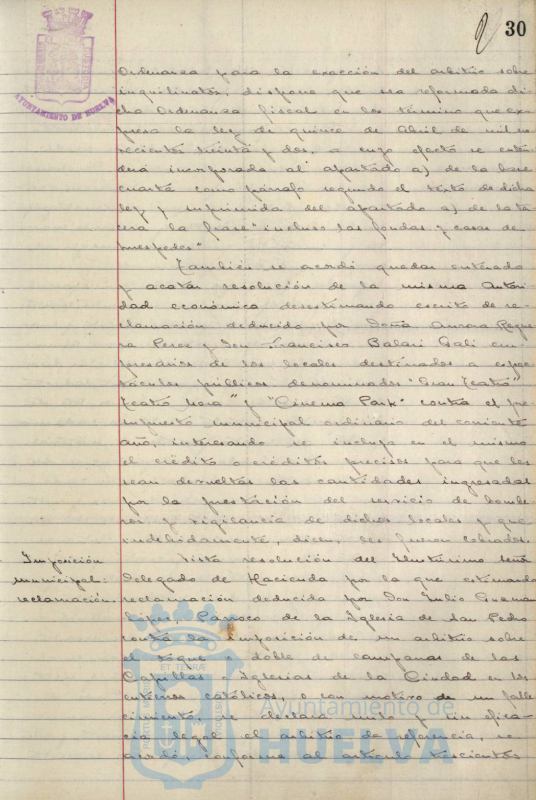 30
AYUNTAMIENTO DE HUELVA
Ordenanza para la exacción del arbitrio sobre
inquilinatos, dispone que sea reformada di-
cha Ordenanza fiscal en los términos que ex-
presa la ley de quince de Abril de mil no-
vecientos treinta y dos, a cuyo efecto se enten-
derá incorporada al apartado a) de la base
cuarta como párrafo segundo el texto de dicha
ley y suprimida del apartado a) de la ter-
cera la frase "incluso las fondas y casas de
huéspedes"
También se acordó quedar enterado
y acatar resolución de la misma Autori-
dad económica desestimando escrito de re-
clamación deducido por Doña Aurora
Perez y Don Francisco Balari Gali em-
presarios de los locales destinados a espec-
táculos públicos denominados "Gran Teatro"
Teatro Mora" y "Cinema Park" contra el pre-
supuesto municipal ordinario del corriente
año, interesando se incluya en el mismo
el crédito o créditos precisos para que les
sean devueltas las cantidades ingresadas
por la prestación del servicio de bombe-
ros y vigilancia de dichos locales y que
indebidamente, dicen, les fueron cobrados.
Imposición
municipal:
reclamación.
Vista resolución del Ilustrísimo señor
Delegado de Hacienda por la que estimando
reclamación deducida por Don Julio Guzman
Lopez, Párroco de la Iglesia de San Pedro
contra la imposición de un arbitrio sobre
el toque o doble de campanas de las
Capillas e Iglesias de la Ciudad en los
entierros católicos, o con motivo de un falle-
cimiento, se declara nulo y sin efica-
cia legal el arbitrio de referencia, se
acordó, conforme al artículo trescientos
Ayuntamiento de
HUELVA